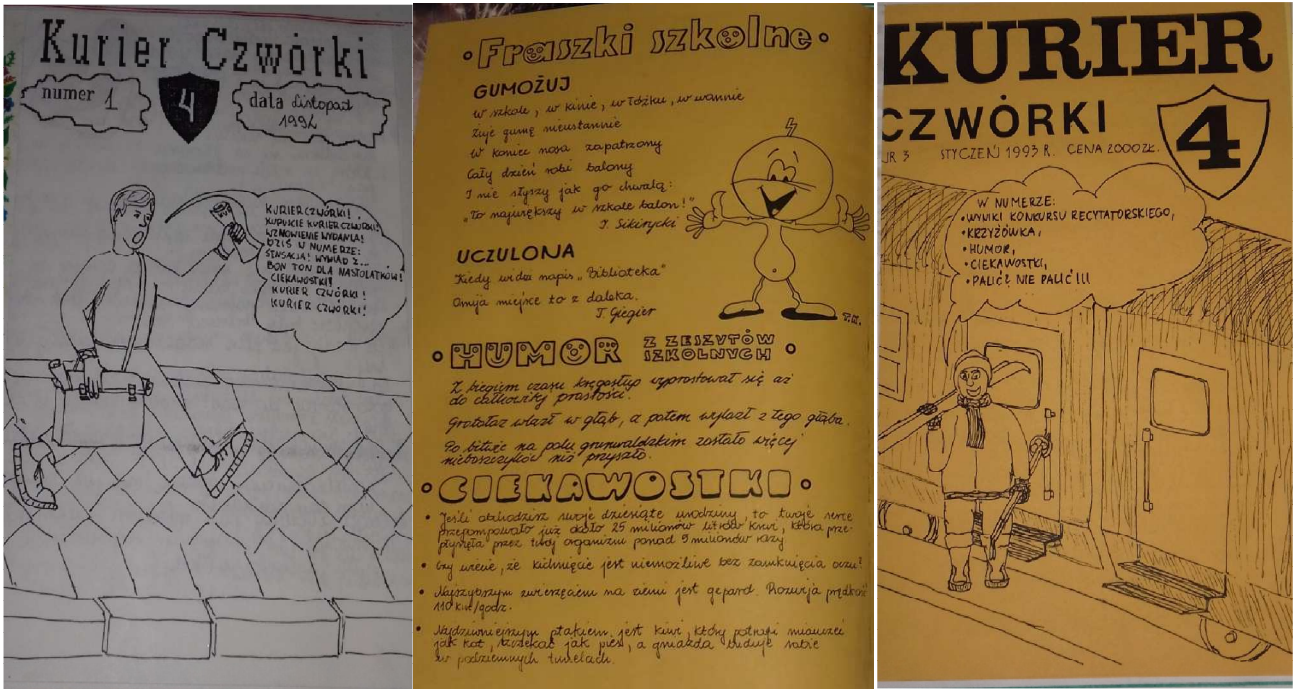 Kurier Czwórki
numer 1
4
data Listopad
1992
KURIER CZWÓRKI!
KUPUJCIE KURIER CZWÓRKI!
WZNOWIENIE WYDANIA!
DZIŚ W NUMERZE:
SENSACJA! WYWIAD Z...
BON TON DLA NASTOLATKÓW!
CIEKAWOSTKI!
KURIER CZWÓRKI!
KURIER CZWÓRKI!
Fraszki szkolne
GUMOŻUJ
W szkole, w kinie, w łóżku, w wannie
Żuje gumę nieustannie
W koniec nosa zapatrzony
Cały dzień robi balony
I nie słyszy jak go chwalą:
"To największy w szkole balon!"
T. Sikirycki
UCZULONA
Kiedy widzi napis „Biblioteka"
Omija miejsce to z daleka.
T. Giegier
T.K.
HUMOR Z ZESZYTÓW
SZKOLNYCH
Z biegiem czasu kręgosłup wyprostował się aż
do całkowitej prostości.
Grotołaz wlazł w głąb, a potem wylazł z tego głąba.
Po bitwie na polu grunwaldzkim zostało więcej
nieboszczyków niż przyszło.
CIEKAWOSTKI
• Jeśli obchodzisz swoje dziesiąte urodziny, to twoje serce
przepompowało już około 25 milionów litrów krwi, która prze-
płynęła przez twój organizm ponad 5 milionów razy
• Czy wiecie, że kichnięcie jest niemożliwe bez zamknięcia oczu?
• Najszybszym zwierzęciem na ziemi jest gepard. Rozwija prędkość
110 km/godz.
• Najdziwniejszym ptakiem jest kiwi, który potrafi miauczeć
jak kot, szczekać jak pies, a gniazda buduje sobie
w podziemnych tunelach.
KURIER
CZWÓRKI
4
NR 3 STYCZEŃ 1993 R. CENA 2000 ZŁ.
W NUMERZE:
• WYNIKI KONKURSU RECYTATORSKIEGO,
• KRZYŻÓWKA,
• HUMOR,
• CIEKAWOSTKI,
• PALIĆ? NIE PALIĆ!!!